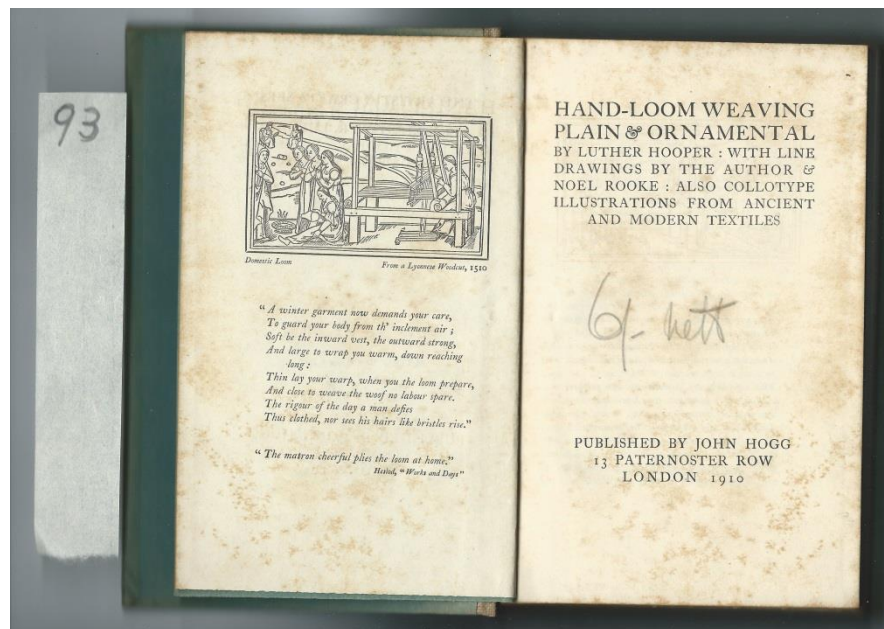 93
Domestic Loom
From a Lyonnese Woodcut, 1510
“ A winter garment now demands your care,
To guard your body from th’ inclement air ;
Soft be the inward vest, the outward strong,
And large to wrap you warm, down reaching
long :
Thin lay your warp, when you the loom prepare,
And close to weave the woof no labour spare.
The rigour of the day a man defies
Thus clothed, nor sees his hairs like bristles rise.”
“ The matron cheerful plies the loom at home.”
Hesiod, “ Works and Days”
HAND-LOOM WEAVING
PLAIN & ORNAMENTAL
BY LUTHER HOOPER : WITH LINE
DRAWINGS BY THE AUTHOR &
NOEL ROOKE : ALSO COLLOTYPE
ILLUSTRATIONS FROM ANCIENT
AND MODERN TEXTILES
6/- nett
PUBLISHED BY JOHN HOGG
13 PATERNOSTER ROW
LONDON 1910